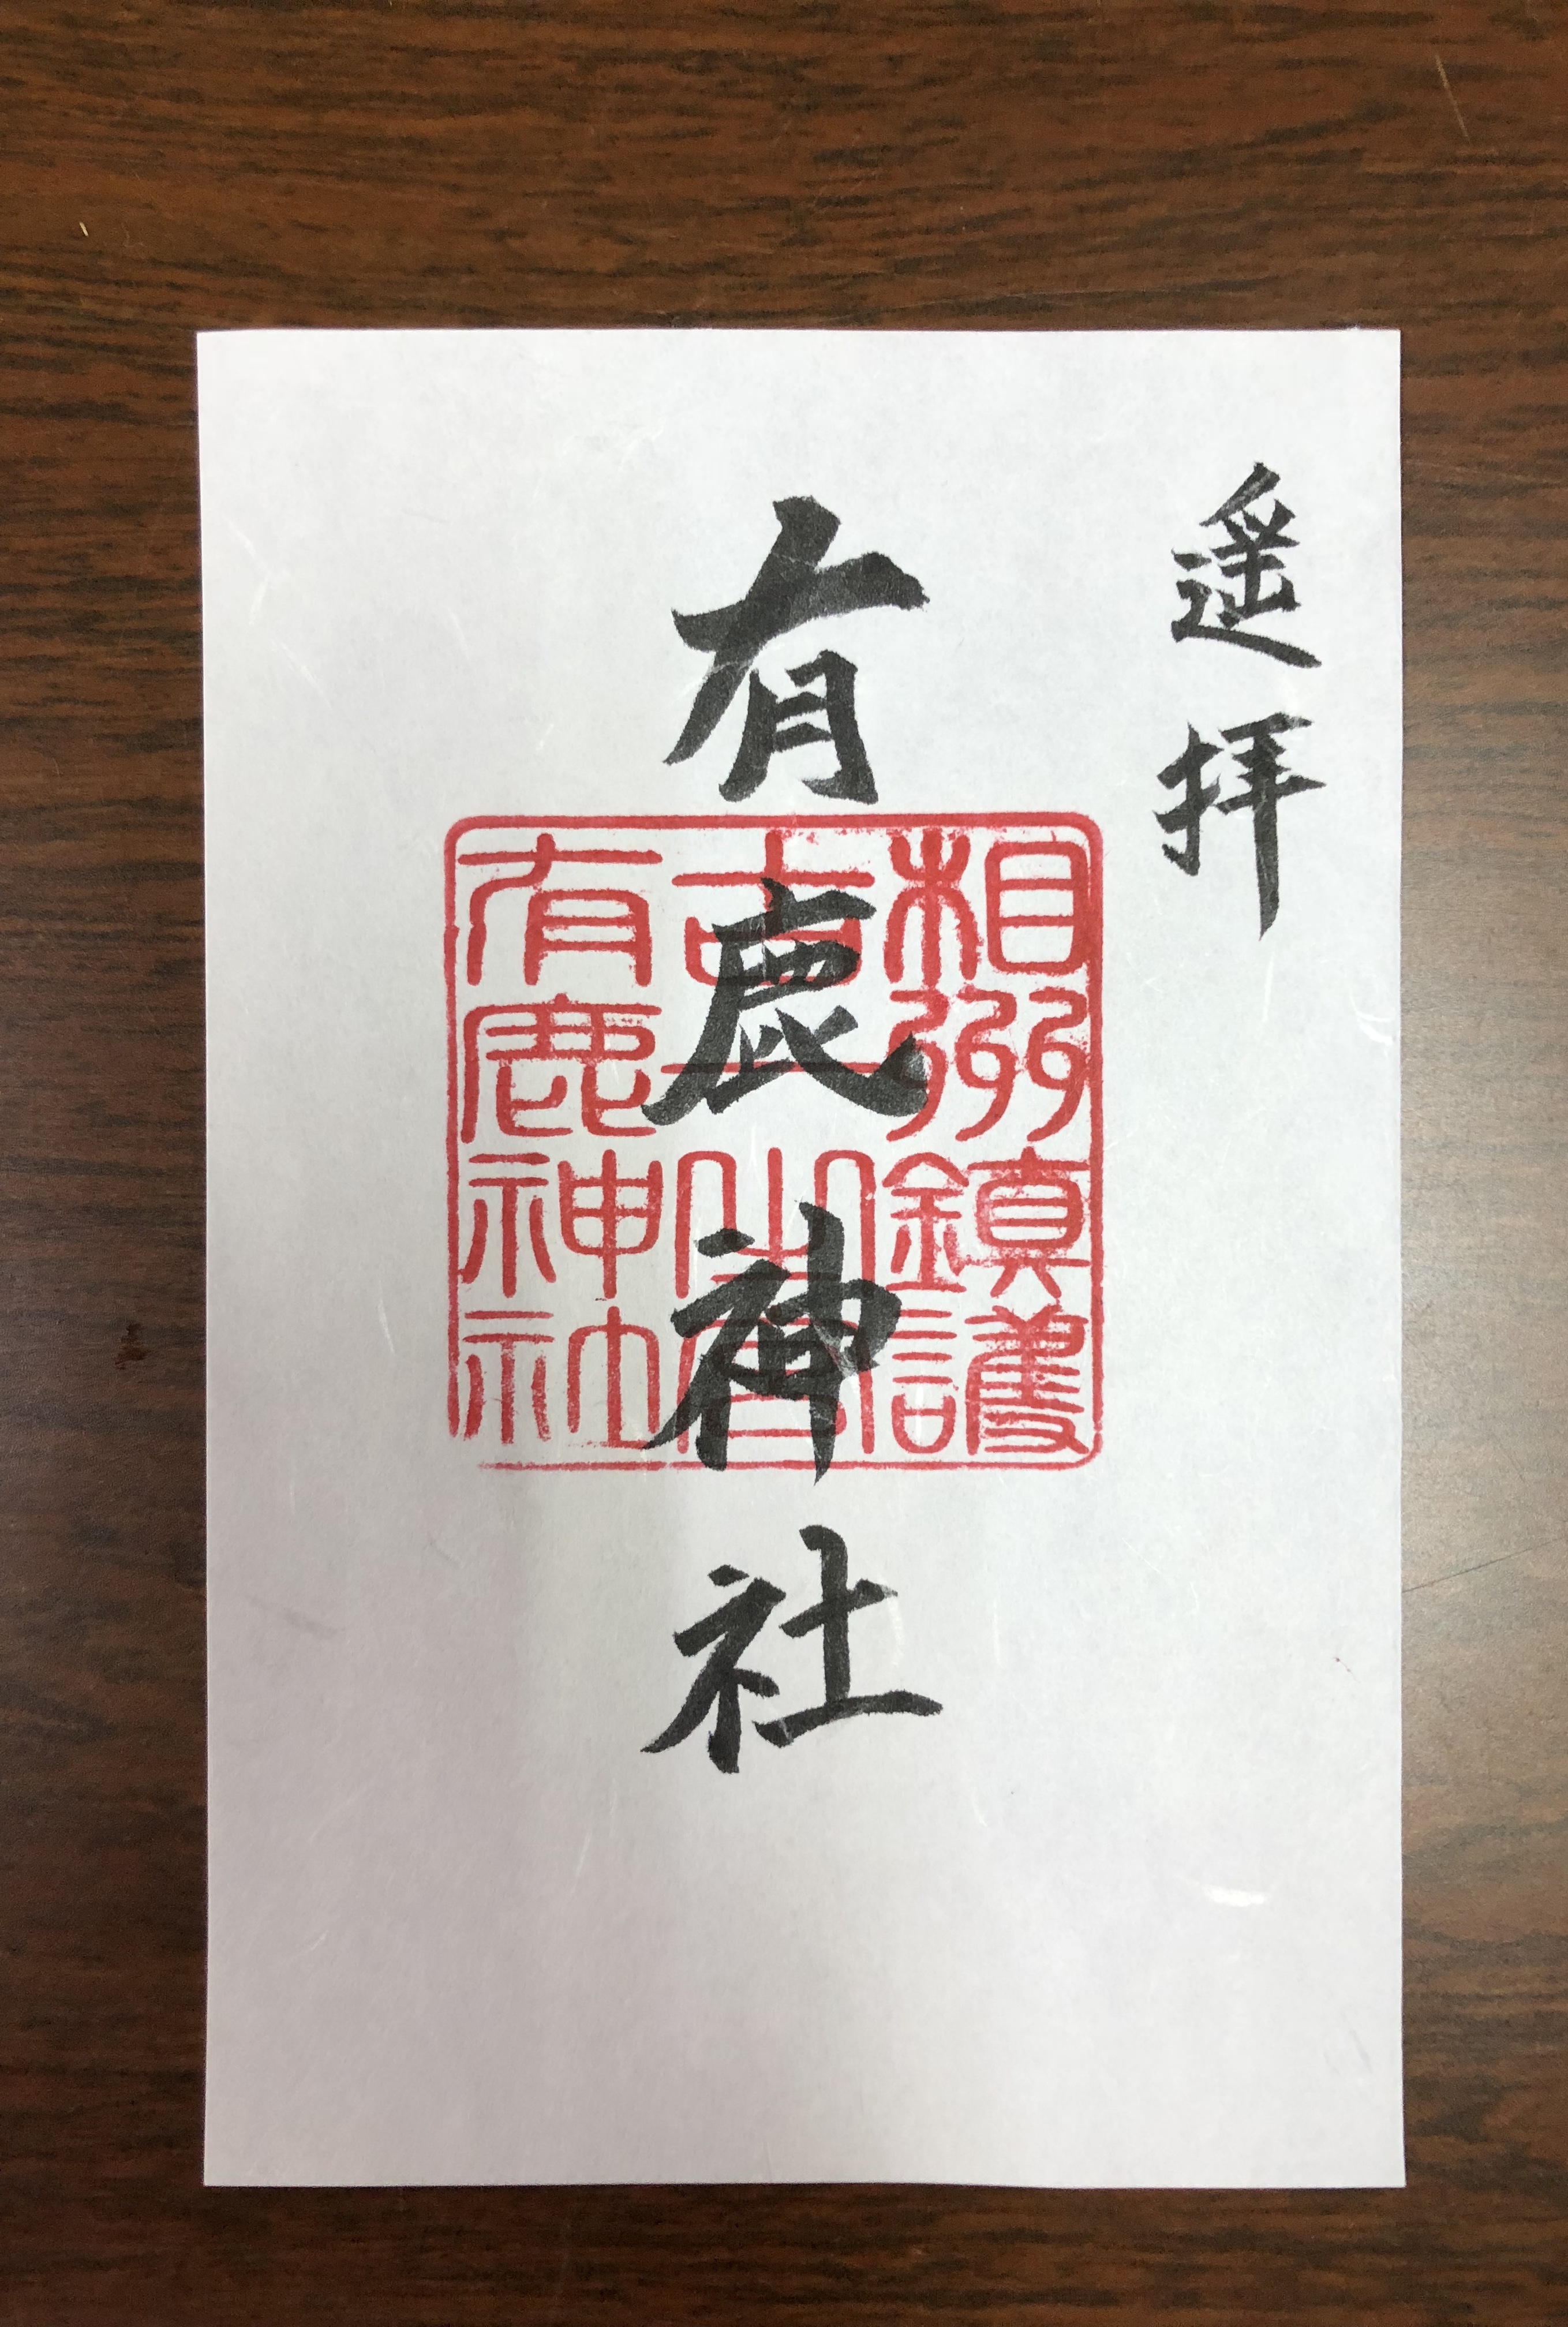 遥拝
有鹿神社
相州鎮護
有鹿神社